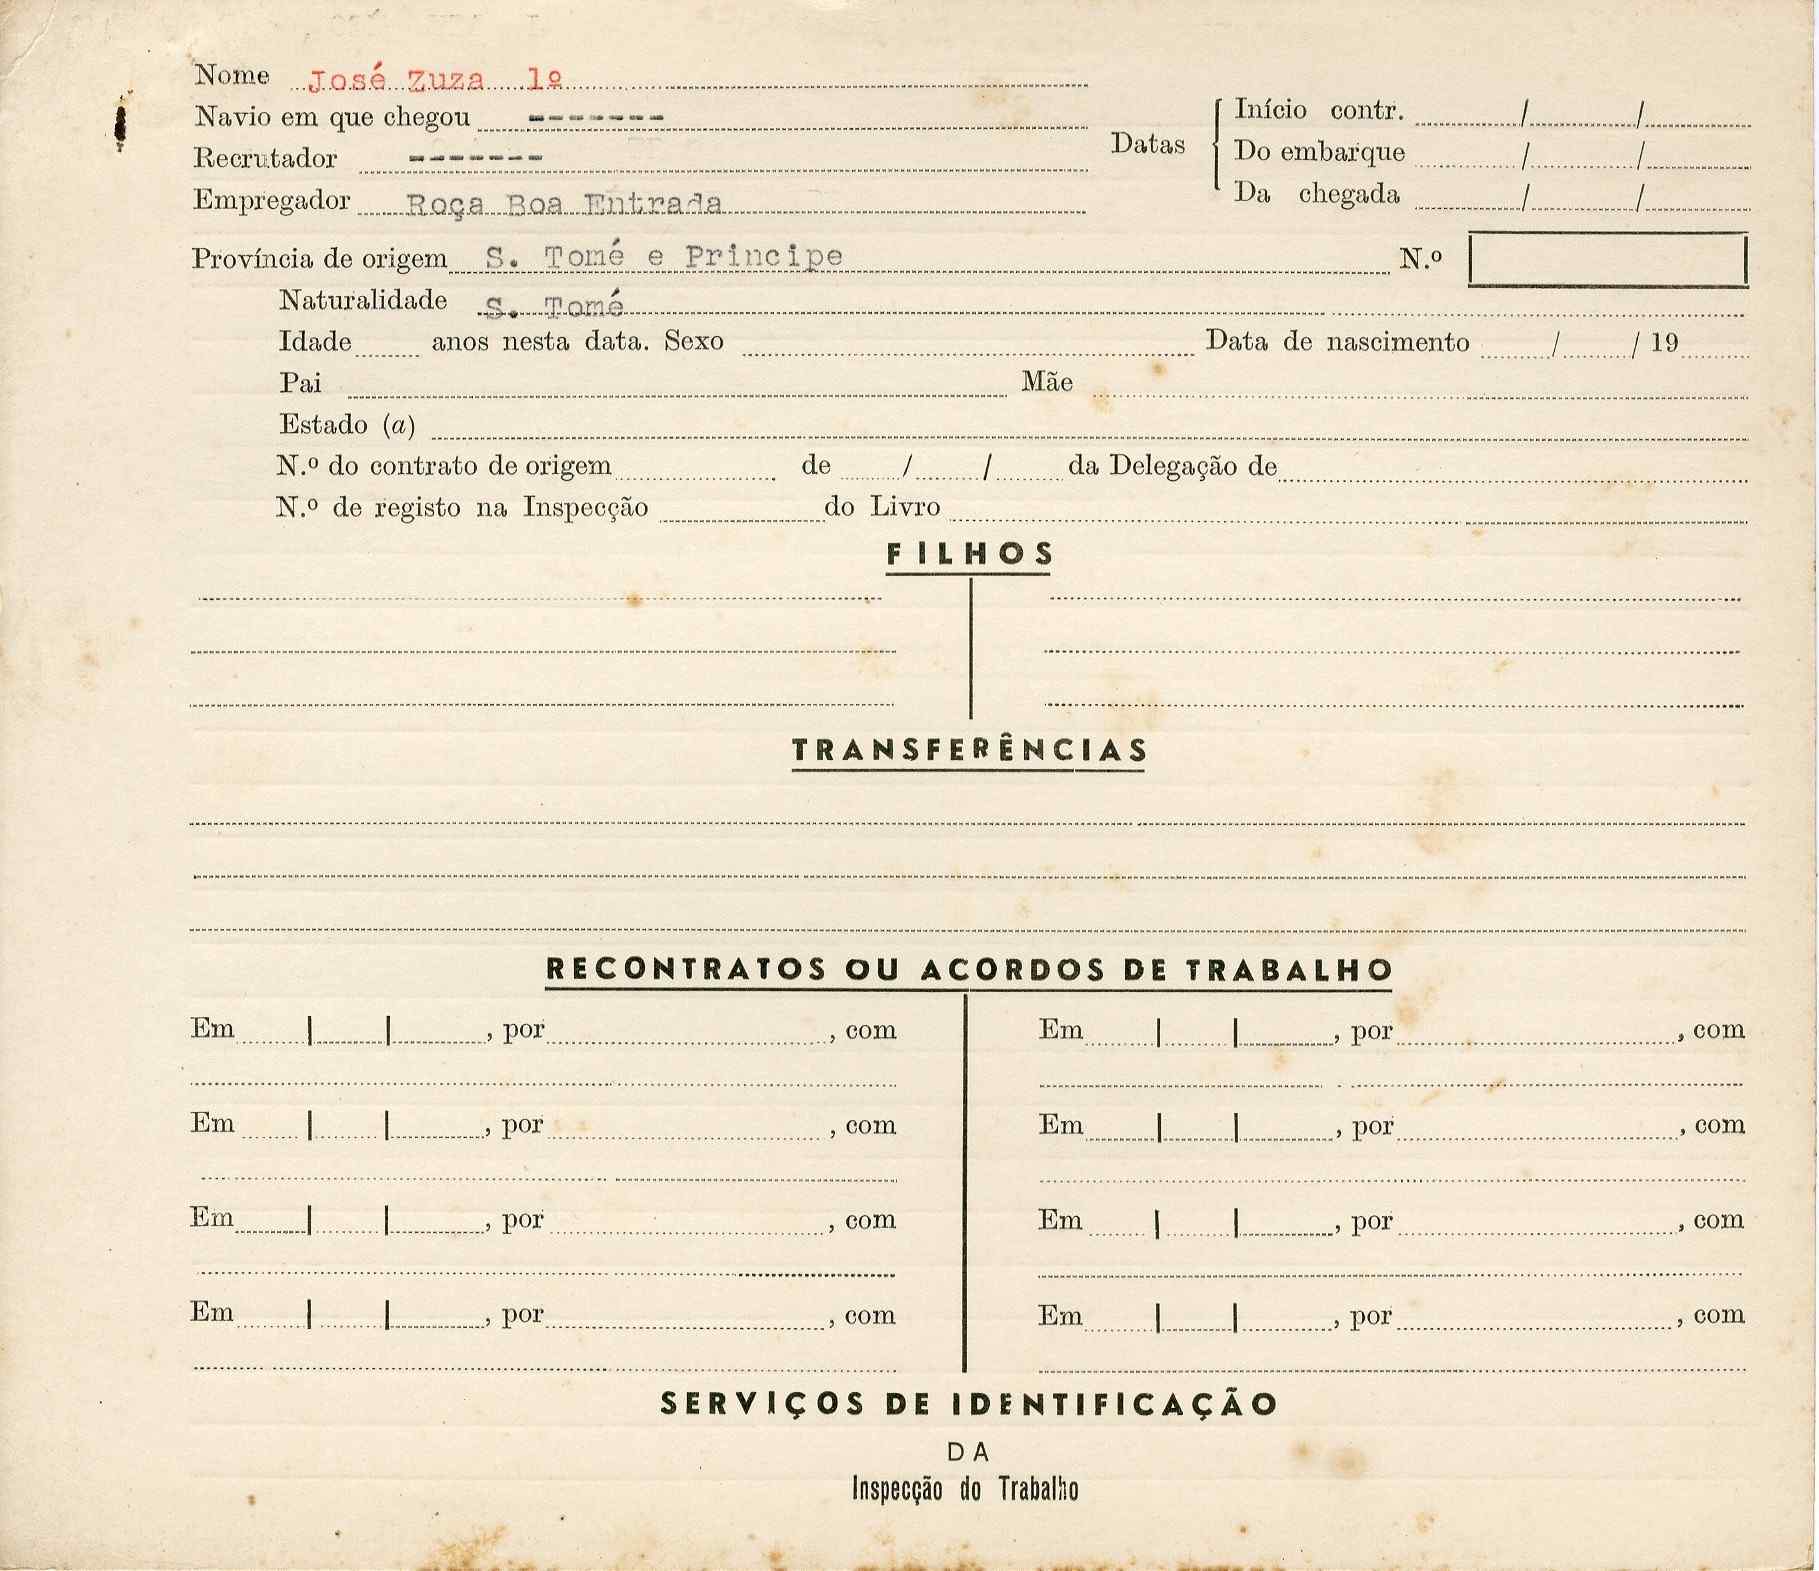 Nome José Zuza 1º
Navio em que chegou -------
Recrutador -------
Empregador Roça Boa Entrada
Datas
Início contr. / /
Do embarque / /
Da chegada / /
Província de origem S. Tomé e Principe N.º
Naturalidade S. Tomé
Idade anos nesta data. Sexo Data de nascimento / / 19
Pai Mãe
Estado (a)
N.º do contrato de origem de / / da Delegação de
N.º de registo na Inspecção do Livro
FILHOS
TRANSFERÊNCIAS
RECONTRATOS OU ACORDOS DE TRABALHO
Em | | , por , com Em | | , por , com
Em | | , por , com Em | | , por , com
Em | | , por , com Em | | , por , com
Em | | , por , com Em | | , por , com
SERVIÇOS DE IDENTIFICAÇÃO
DA
Inspecção do Trabalho